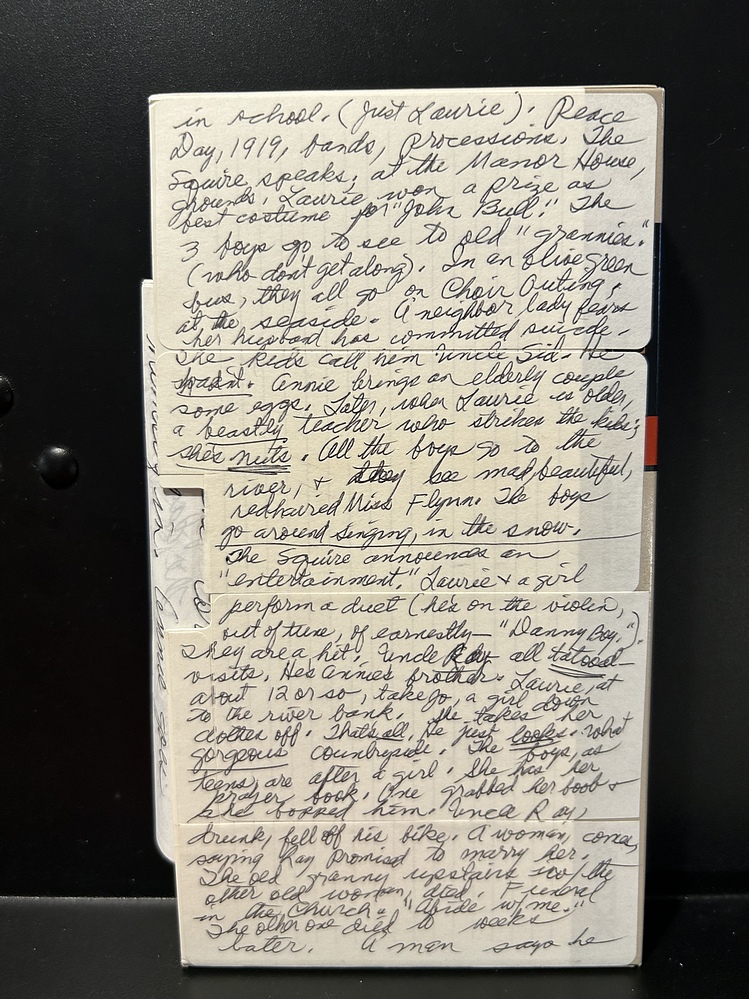 in school. (Just Laurie). Peace
Day, 1919, bands, processions. The
Squire speaks, at the Manor House,
grounds. Laurie won a prize as
best costume for "John Bull." The
3 boys go to see to old "grannies."
(who don't get along). In an olive green
bus, they all go on Choir Outing,
at the seaside. A neighbor lady fears
her husband has committed suicide.
The kids call him Uncle Sid. He
hadn't. Annie brings an elderly couple
some eggs. Later, when Laurie is older,
a beastly teacher who strikes the kids;
she's nuts. All the boys go to the
river, + they see mad, beautiful,
redhaired Miss Flynn. The boys
go around singing, in the snow.
The Squire announces an
"entertainment." Laurie + a girl
perform a duet (he's on the violin,
out of tune, of earnestly— "Danny Boy.").
They are a hit. Uncle Ray all tatooed—
visits. Hes Annies brother. Laurie, at
about 12 or so, take Jo, a girl down
to the river bank. She takes her
clothes off. That's all. He just looks. What
gorgeous countryside. The boys, as
teens, are after a girl. She has her
prayer book. One grabbed her boob +
she bopped him. Uncle Ray,
drunk, fell off his bike. A woman comes,
saying Ray promised to marry her.
The old granny upstairs w/the
other old woman, died. Funeral
in the Church. "Abide w/me."
The other one died to weeks
later. A man says he